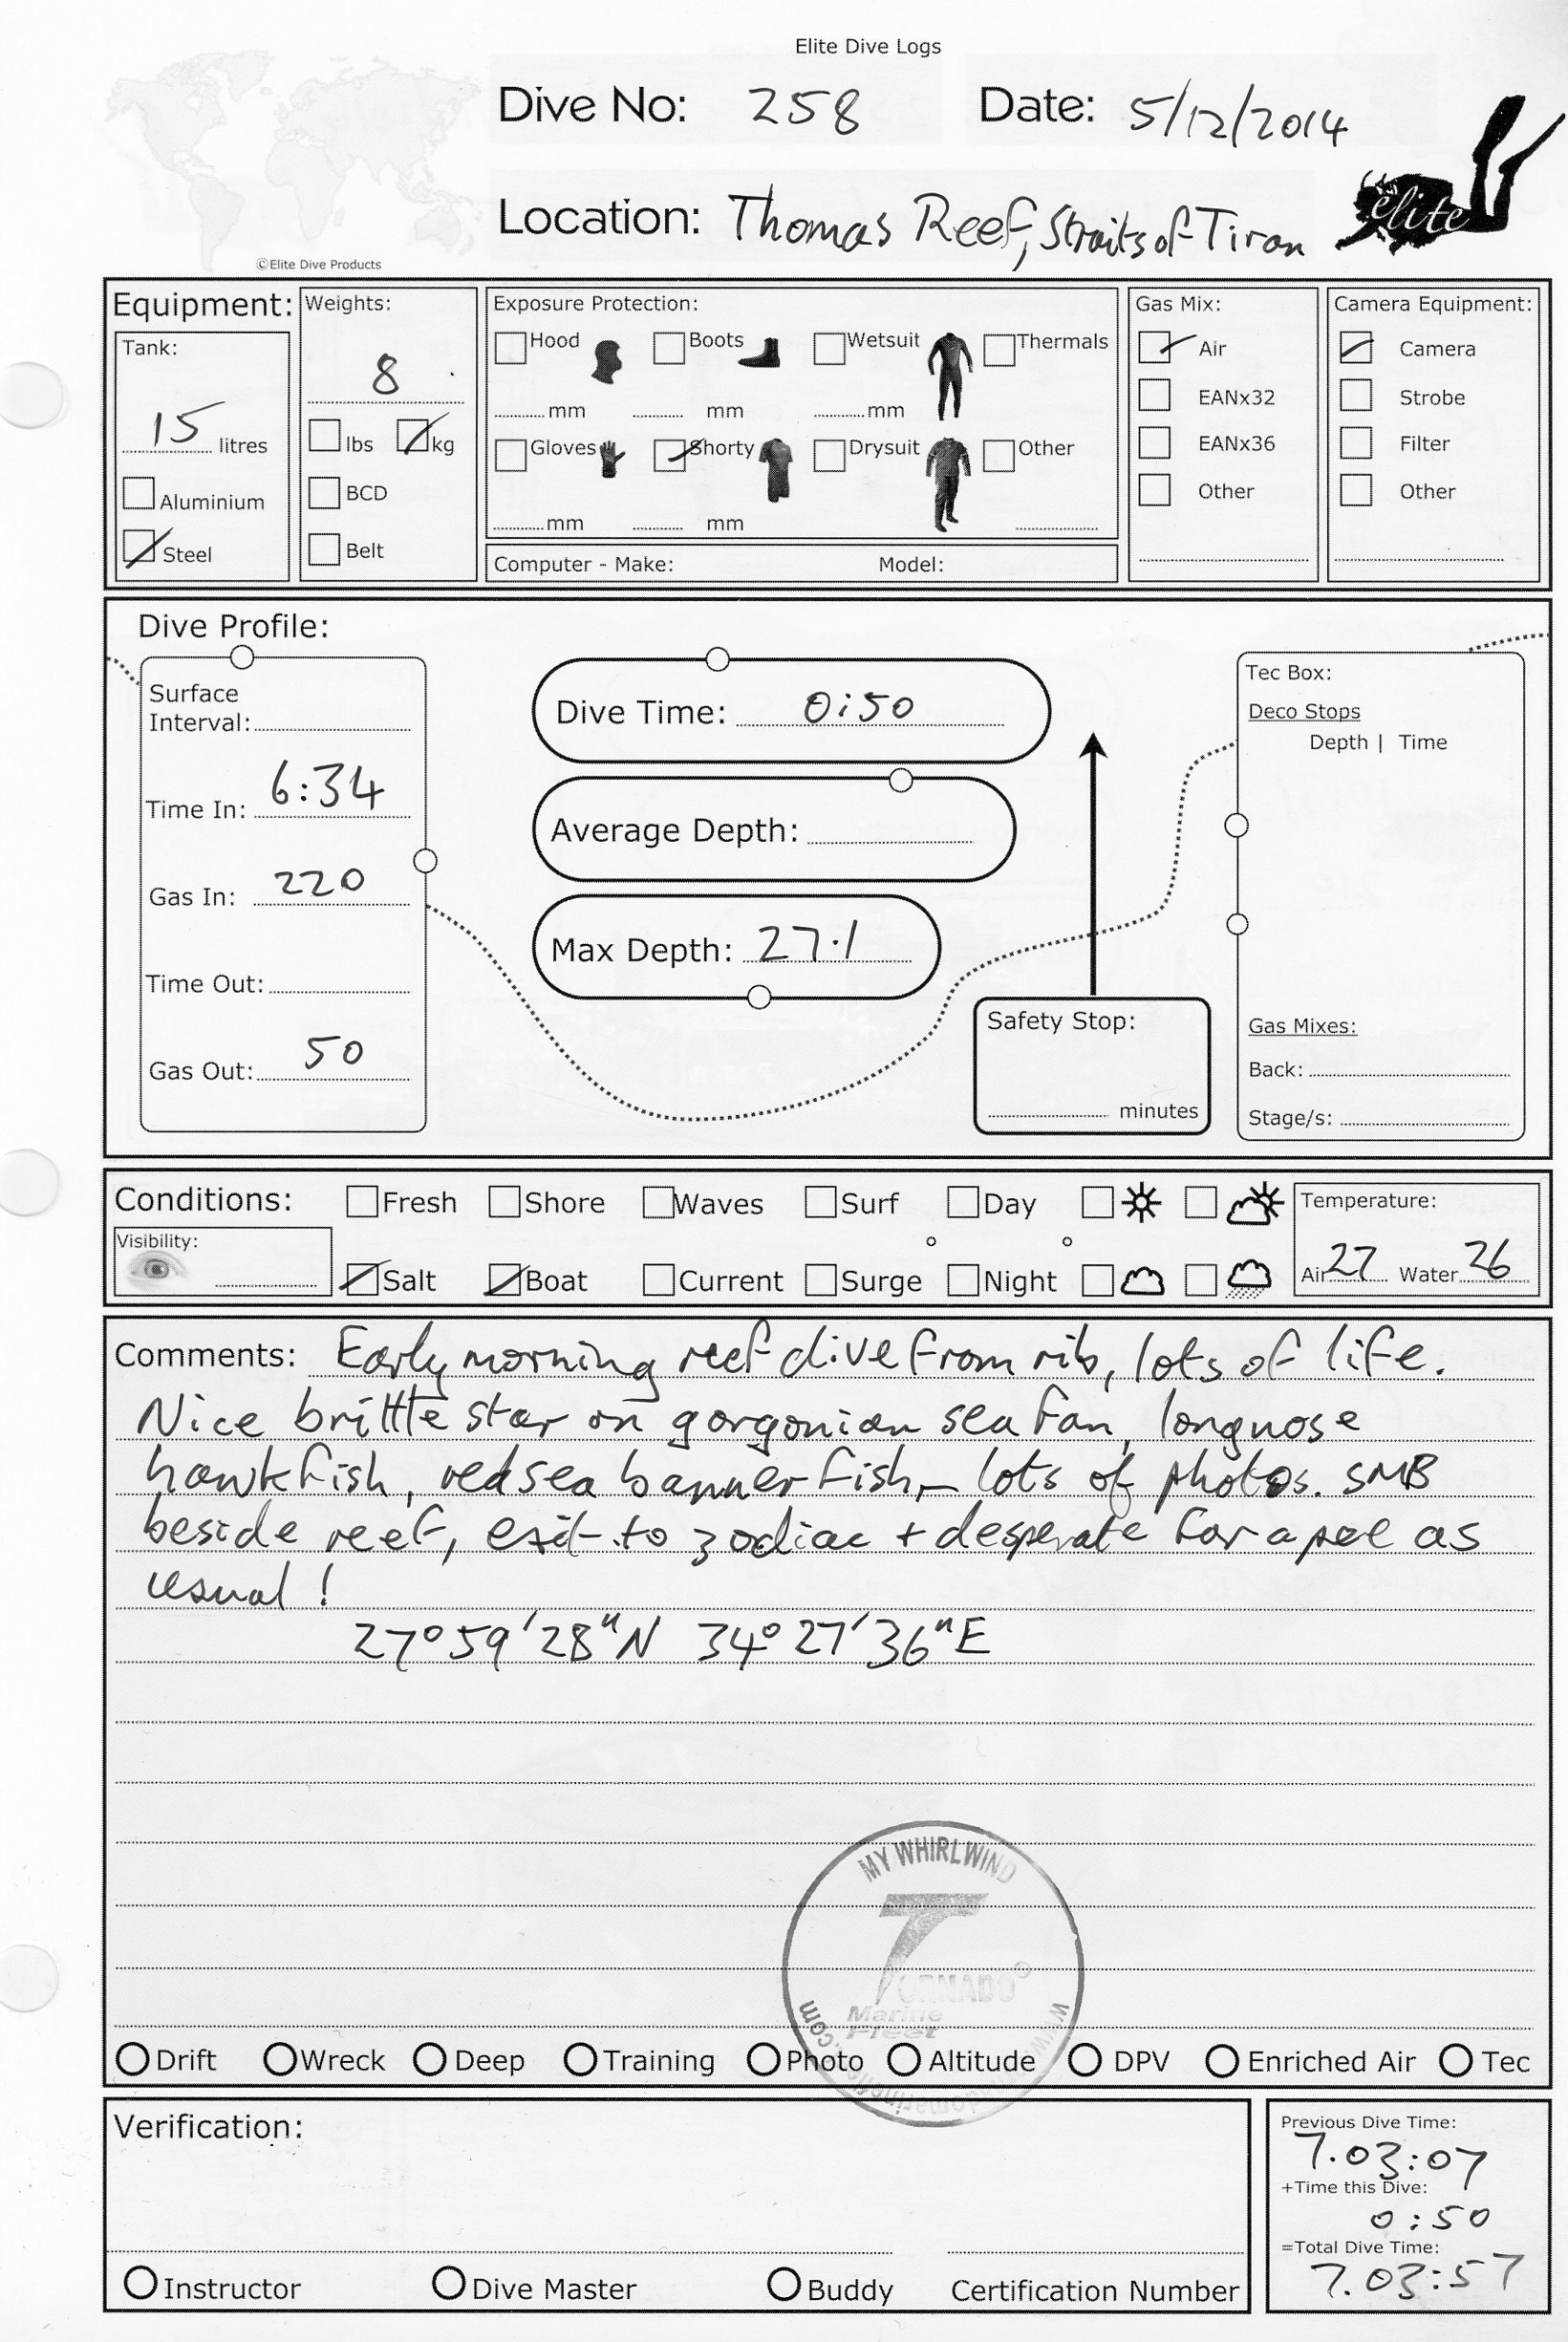 Elite Dive Logs
Dive No: 258 Date: 5/12/2014
Location: Thomas Reef, Straits of Tiran
elite
©Elite Dive Products
Equipment:
Tank:
15 litres
Aluminium
Steel
Weights:
8
lbs kg
BCD
Belt
Exposure Protection:
Hood Boots Wetsuit Thermals
mm mm mm
Gloves Shorty Drysuit Other
mm mm
Computer - Make: Model:
Gas Mix:
Air
EANx32
EANx36
Other
Camera Equipment:
Camera
Strobe
Filter
Other
Dive Profile:
Surface
Interval:
Time In: 6:34
Gas In: 220
Time Out:
Gas Out: 50
Dive Time: 0:50
Average Depth:
Max Depth: 27.1
Safety Stop:
minutes
Tec Box:
Deco Stops
Depth | Time
Gas Mixes:
Back:
Stage/s:
Conditions: Fresh Shore Waves Surf Day
Visibility:
Salt Boat Current Surge Night
Temperature:
Air 27 Water 26
Comments: Early morning reef dive from rib, lots of life.
Nice brittle star on gorgonian sea fan, longnose
hawkfish, red sea bannerfish – lots of photos. SMB
beside reef, exit to zodiac + desperate for a pee as
usual!
27°59'28"N 34°27'36"E
MY WHIRLWIND
TORNADO
Marine
Fleet
Drift Wreck Deep Training Photo Altitude DPV Enriched Air Tec
Verification:
Instructor Dive Master Buddy Certification Number
Previous Dive Time:
7.03:07
+Time this Dive:
0:50
=Total Dive Time:
7.03:57